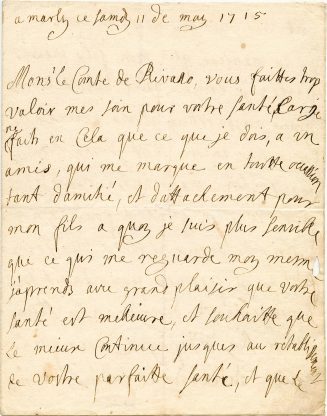 a marly ce samdy 11 de may 1715
Mons.r le Comte de Rivaro, vous faittes trop
valoir mes soin pour vostre santé, Car je
ne fait en Cela que ce que je dois, a un
amis, qui me marque en toutte occassion
tant d'amitié, et d'attachement pour
mon fils a quoy je suis plus sensible
que ce qui me reguarde moy mesme
j'aprends avec grand plaisir que vostre
santé est melieure, et souhaitte que
le mieux Continue jusques au retablissement
de vostre parfaitte santé, et que le